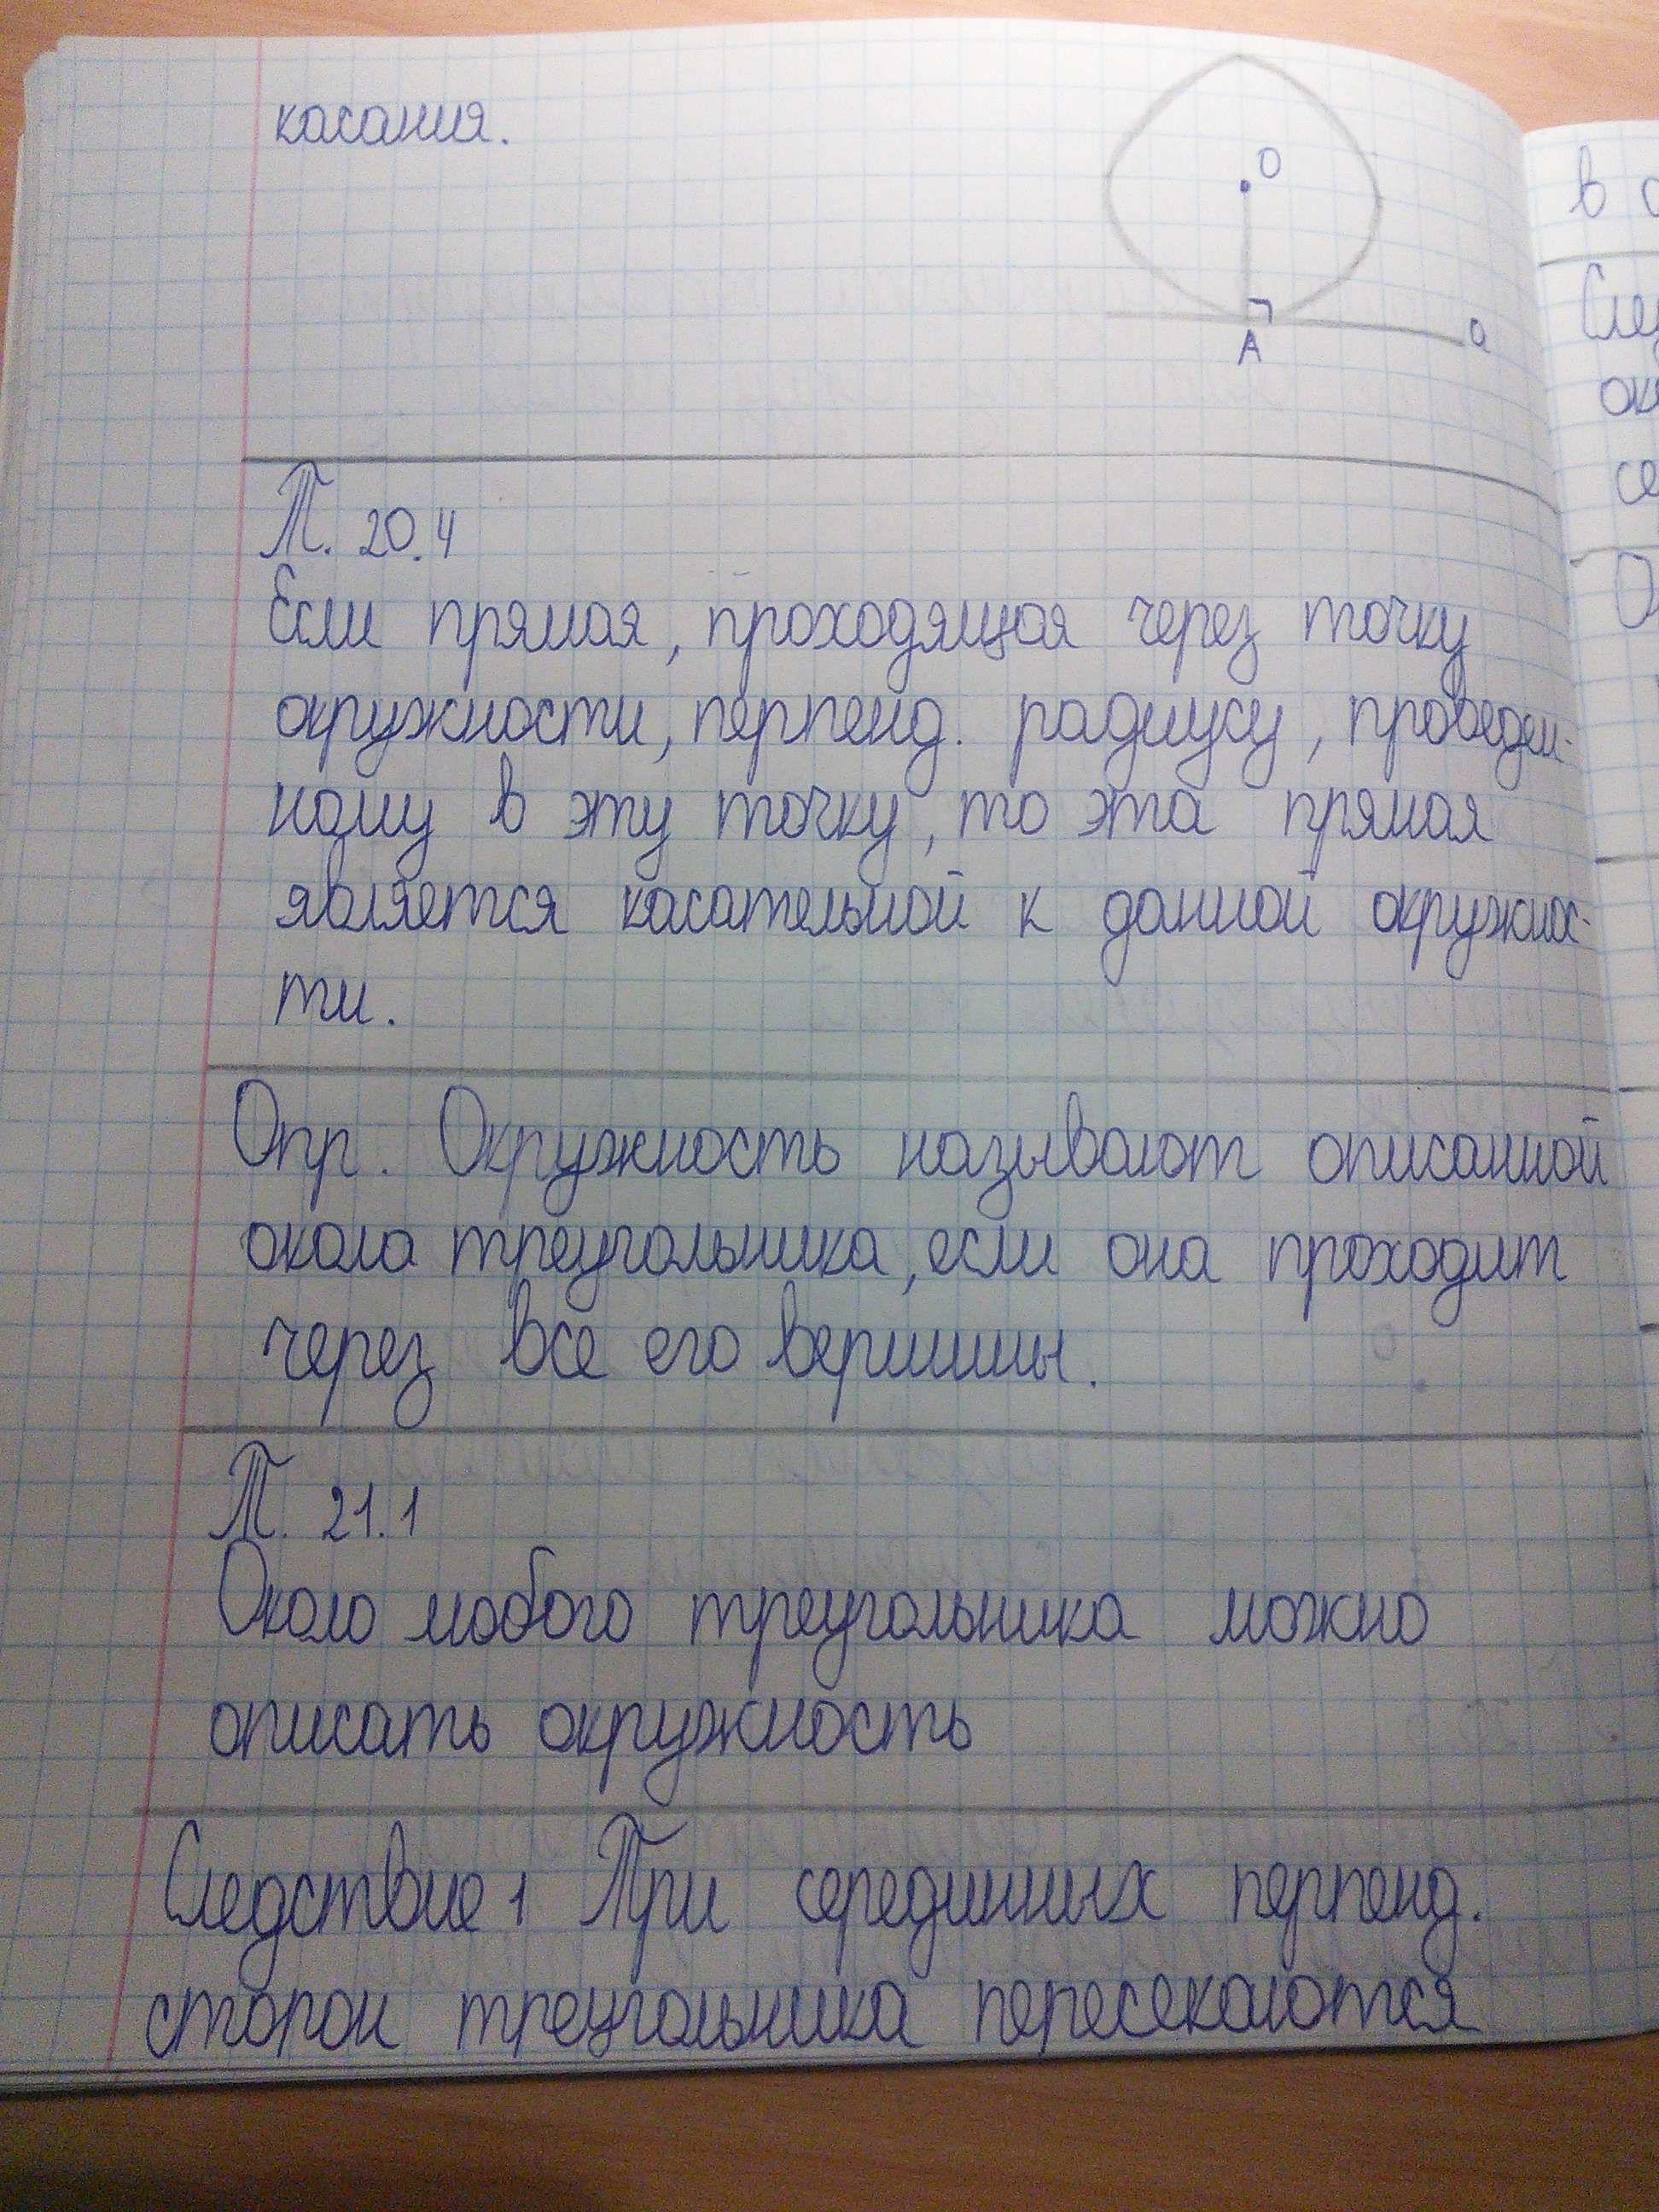 касания.
О
А
а
Т. 20.4
Если прямая, проходящая через точку
окружности, перпенд. радиусу, проведен-
ному в эту точку, то эта прямая
является касательной к данной окружнос-
ти.
Опр. Окружность называют описанной
окола треугольника, если она проходит
через все его вершины.
Т. 21.1
Около любого треугольника можно
описать окружность
Следствие 1 Три серединных перпенд.
сторон треугольника пересекаются
в